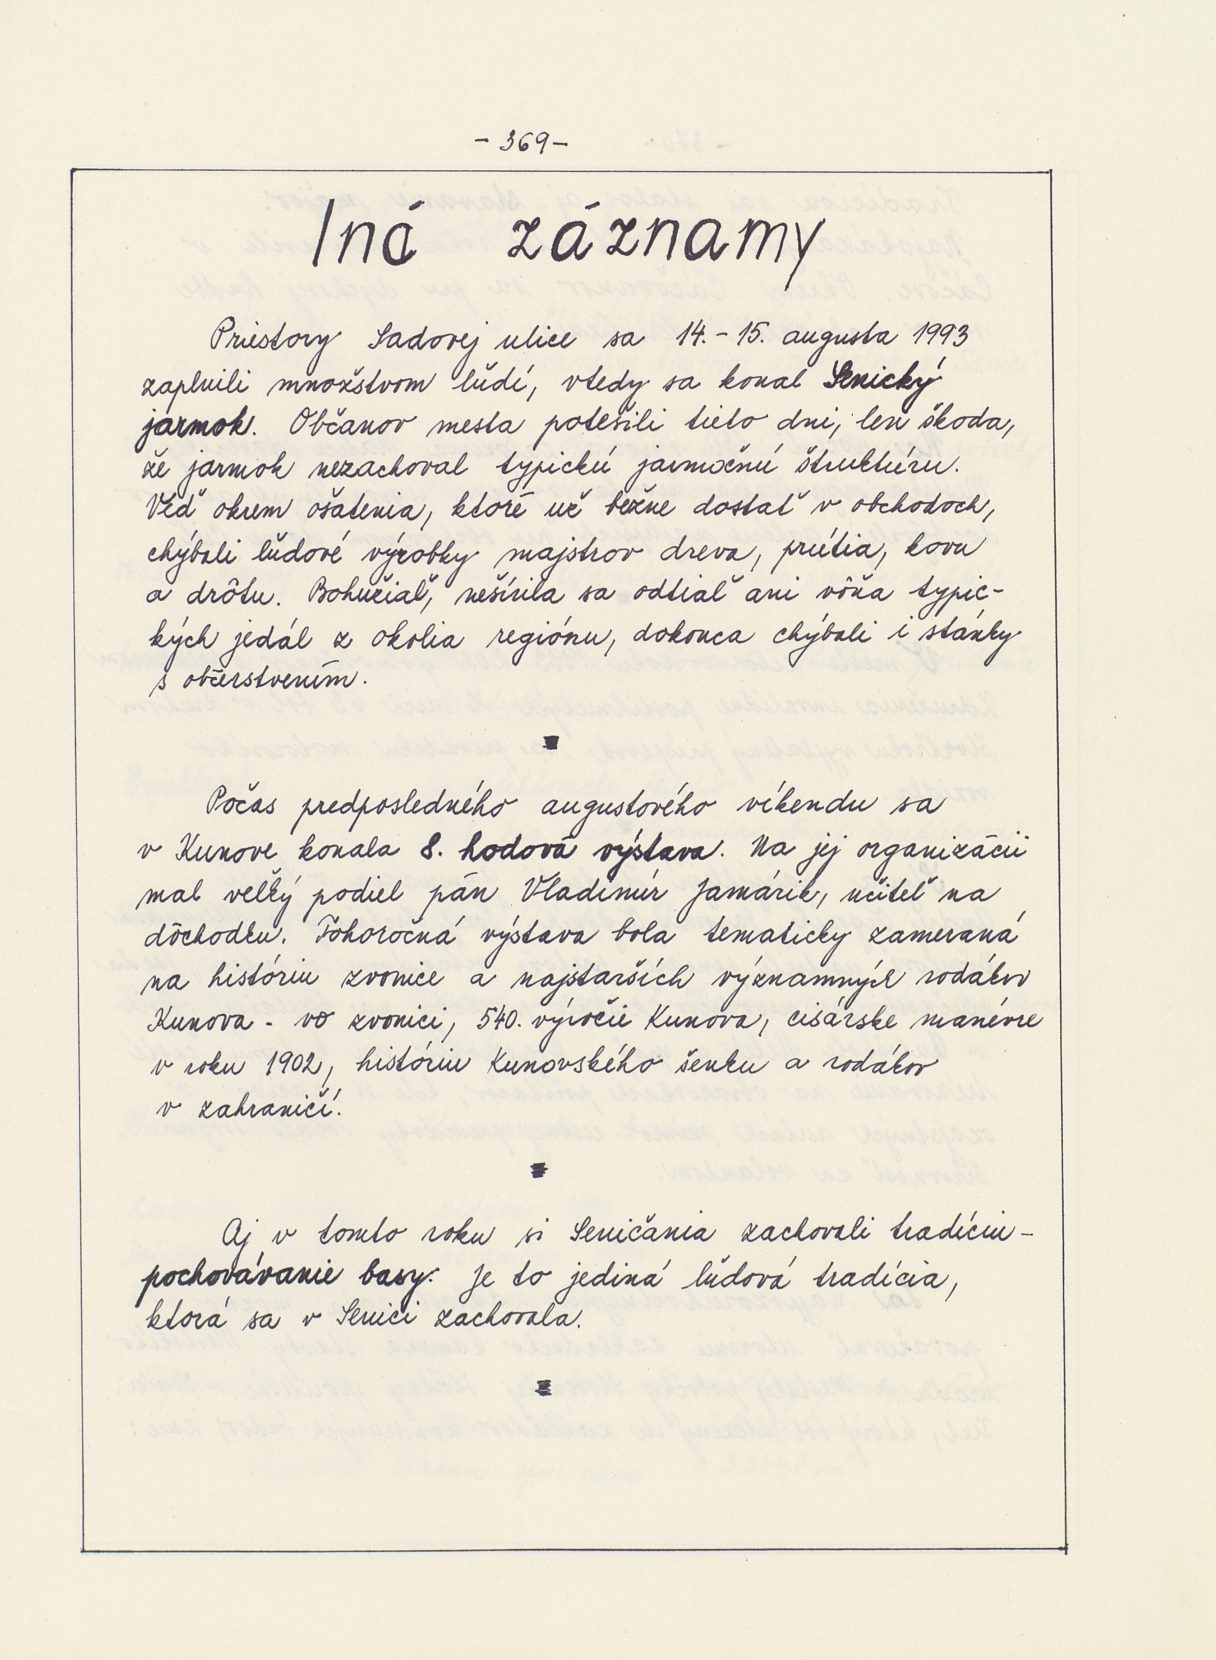 - 369 -
Iné záznamy
Priestory Sadovej ulice sa 14. - 15. augusta 1993
zaplnili množstvom ľudí, vtedy sa konal Senický
jarmok. Občanov mesta potešili tieto dni, len škoda,
že jarmok nezachoval typickú jarmočnú štruktúru.
Veď okrem ošatenia, ktoré už bežne dostať v obchodoch,
chýbali ľudové výrobky majstrov dreva, prútia, kovu
a drôtu. Bohužiaľ, nešírila sa odtiaľ ani vôňa typic-
kých jedál z okolia regiónu, dokonca chýbali i stánky
s občerstvením.
Počas predposledného augustového víkendu sa
v Kunove konala 8. hodová výstava. Na jej organizácii
mal veľký podiel pán Vladimír Jamárik, učiteľ na
dôchodku. Tohoročná výstava bola tematicky zameraná
na históriu zvonice a najstarších významných rodákov
Kunova - vo zvonici, 540. výročie Kunova, cisárske manévre
v roku 1902, históriu Kunovského šenku a rodákov
v zahraničí.
Aj v tomto roku si Seničania zachovali tradíciu -
pochovávanie basy. Je to jediná ľudová tradícia,
ktorá sa v Senici zachovala.